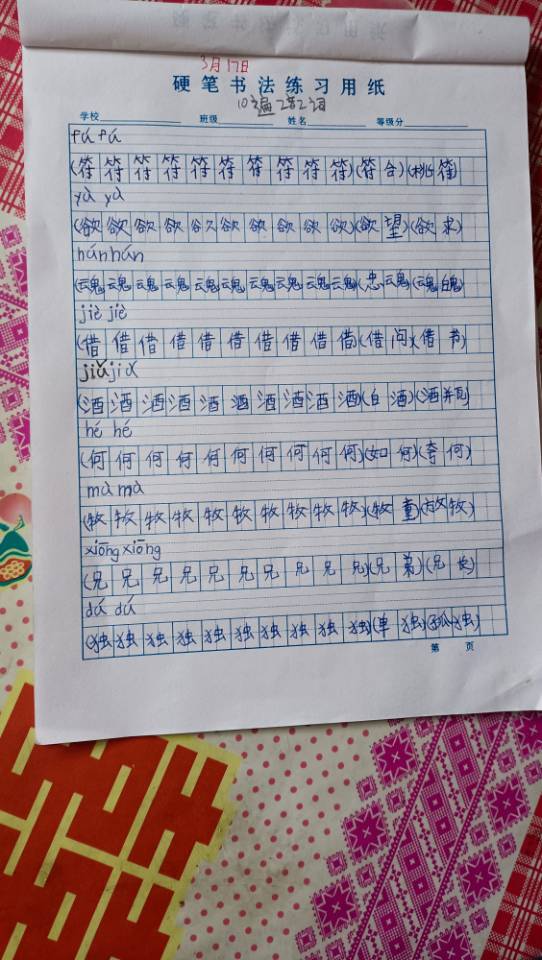 3月17日
硬笔书法练习用纸
10遍 2拼2词
学校 班级 姓名 等级分
fú fú
(符符符符符符符符符符)(符合)(桃符)
yù yù
(欲欲欲欲欲欲欲欲欲欲)(欲望)(欲求)
hún hún
(魂魂魂魂魂魂魂魂魂魂)(忠魂)(魂魄)
jiè jiè
(借借借借借借借借借借)(借问)(借书)
jiǔ jiǔ
(酒酒酒酒酒酒酒酒酒酒)(白酒)(酒瓶)
hé hé
(何何何何何何何何何何)(如何)(奈何)
mù mù
(牧牧牧牧牧牧牧牧牧牧)(牧童)(放牧)
xiōng xiōng
(兄兄兄兄兄兄兄兄兄兄)(兄弟)(兄长)
dú dú
(独独独独独独独独独独)(单独)(孤独)
第 页